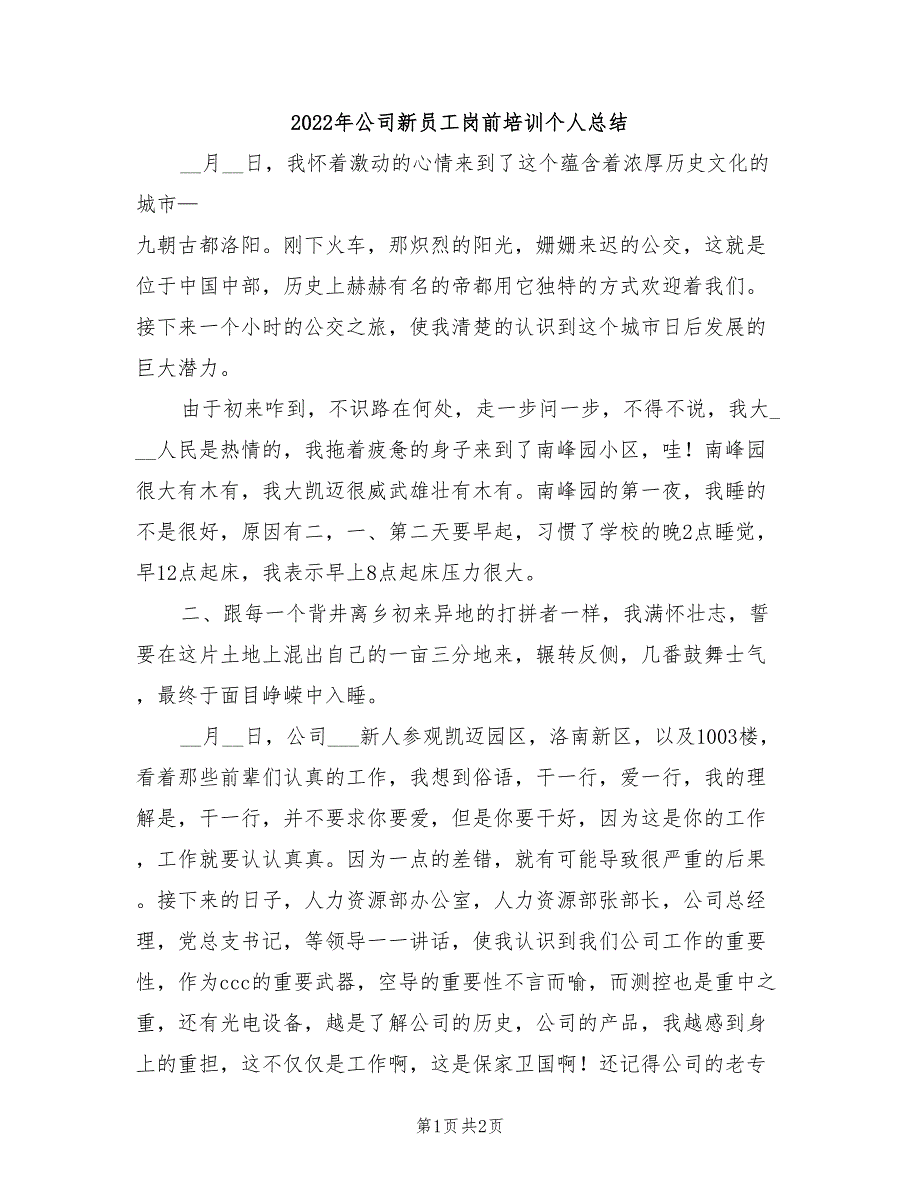 2022年公司新员工岗前培训个人总结
__月__日，我怀着激动的心情来到了这个蕴含着浓厚历史文化的
城市—
九朝古都洛阳。刚下火车，那炽烈的阳光，姗姗来迟的公交，这就是
位于中国中部，历史上赫赫有名的帝都用它独特的方式欢迎着我们。
接下来一个小时的公交之旅，使我清楚的认识到这个城市日后发展的
巨大潜力。
由于初来咋到，不识路在何处，走一步问一步，不得不说，我大_
__人民是热情的，我拖着疲惫的身子来到了南峰园小区，哇！南峰园
很大有木有，我大凯迈很威武雄壮有木有。南峰园的第一夜，我睡的
不是很好，原因有二，一、第二天要早起，习惯了学校的晚2点睡觉，
早12点起床，我表示早上8点起床压力很大。
二、跟每一个背井离乡初来异地的打拼者一样，我满怀壮志，誓
要在这片土地上混出自己的一亩三分地来，辗转反侧，几番鼓舞士气
，最终于面目峥嵘中入睡。
__月__日，公司___新人参观凯迈园区，洛南新区，以及1003楼，
看着那些前辈们认真的工作，我想到俗语，干一行，爱一行，我的理
解是，干一行，并不要求你要爱，但是你要干好，因为这是你的工作
，工作就要认认真真。因为一点的差错，就有可能导致很严重的后果
。接下来的日子，人力资源部办公室，人力资源部张部长，公司总经
理，党总支书记，等领导一一讲话，使我认识到我们公司工作的重要
性，作为ccc的重要武器，空导的重要性不言而喻，而测控也是重中之
重，还有光电设备，越是了解公司的历史，公司的产品，我越感到身
上的重担，这不仅仅是工作啊，这是保家卫国啊！还记得公司的老专
第1页共2页